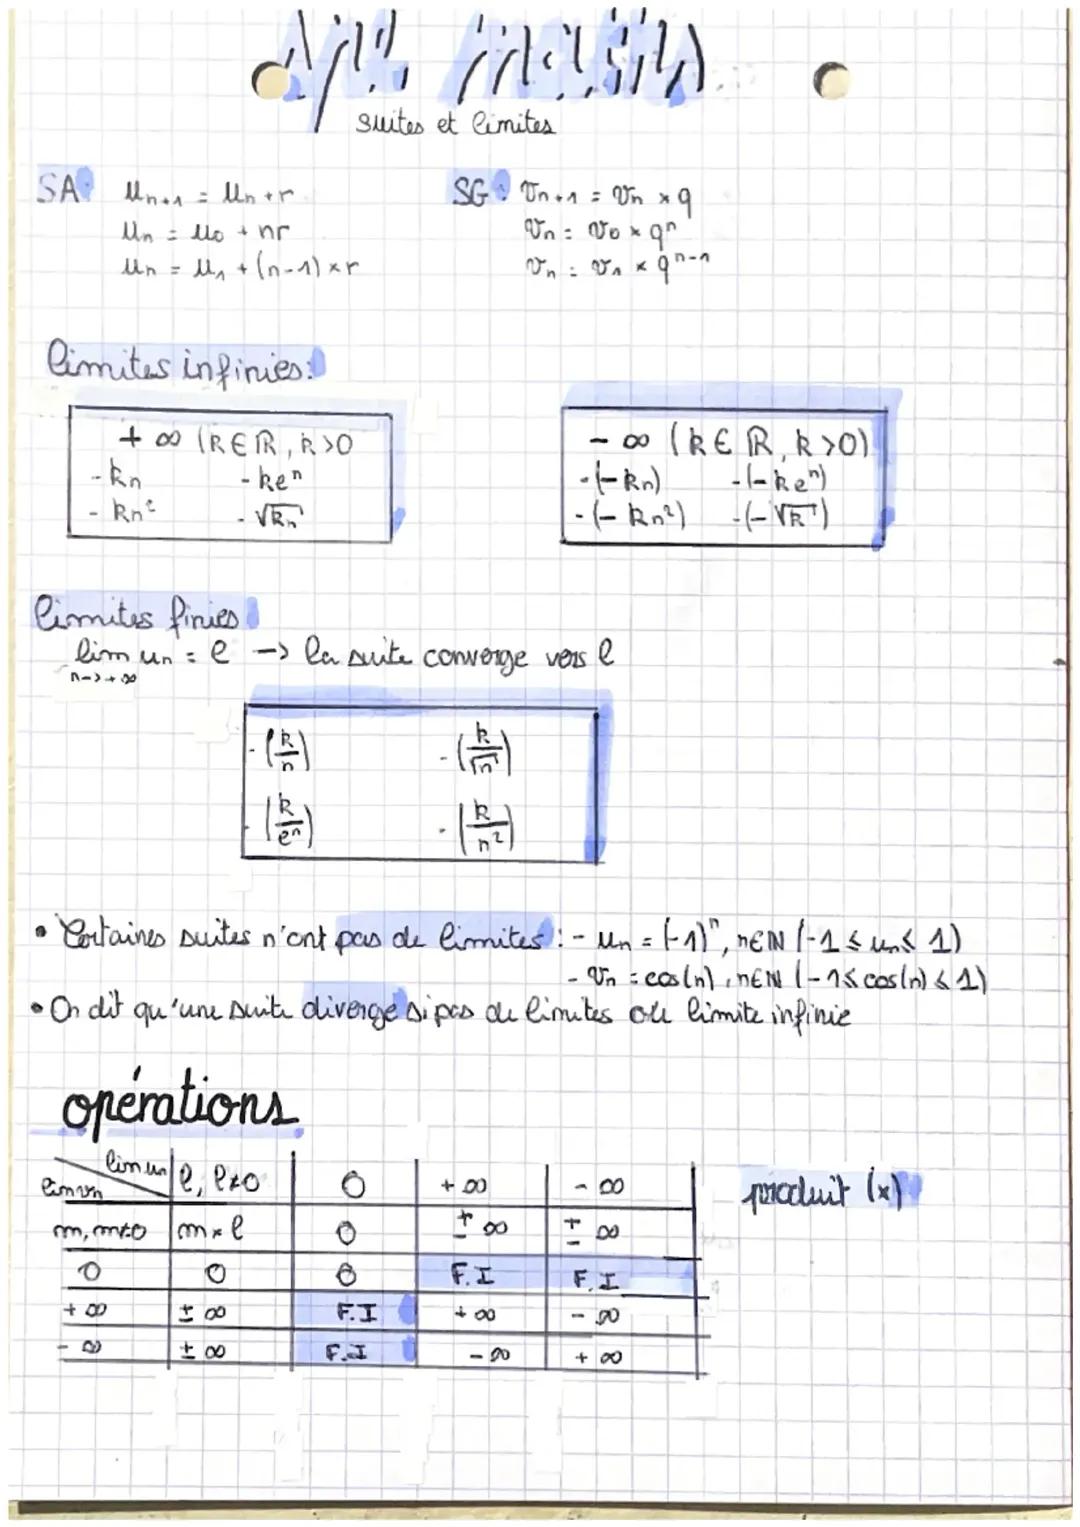 Spé maths
suites et limites
SA: Un+1 = Un + r
Un = U0 + nr
Un = U1 + (n-1) × r
SG: Vn+1 = Vn × q
Vn = V0 × qⁿ
Vn = V1 × qⁿ⁻¹
limites infinies:
+ ∞ (k ∈ ℝ, k >0
- kn - keⁿ
- kn² - √kn
- ∞ (k ∈ ℝ, k >0)
- (-kn) - (-keⁿ)
- (-kn²) - (-√k)
limites finies
lim un = l -> la suite converge vers l
n->+∞
- (k/n) - (k/√n)
- (k/eⁿ) - (k/n²)
• Certaines suites n'ont pas de limites : - Un = (-1)ⁿ, n∈ℕ (-1 ≤ un ≤ 1)
- Vn = cos(n), n∈ℕ (-1 ≤ cos(n) ≤ 1)
• On dit qu'une suite diverge si pas de limites ou limite infinie
opérations
lim un l, l≠0 0 +∞ -∞ produit (×)
lim vn
m, m≠0 m×l 0 ±∞ ±∞
0 0 0 F.I F.I
+∞ ±∞ F.I +∞ -∞
-∞ ±∞ F.I -∞ +∞